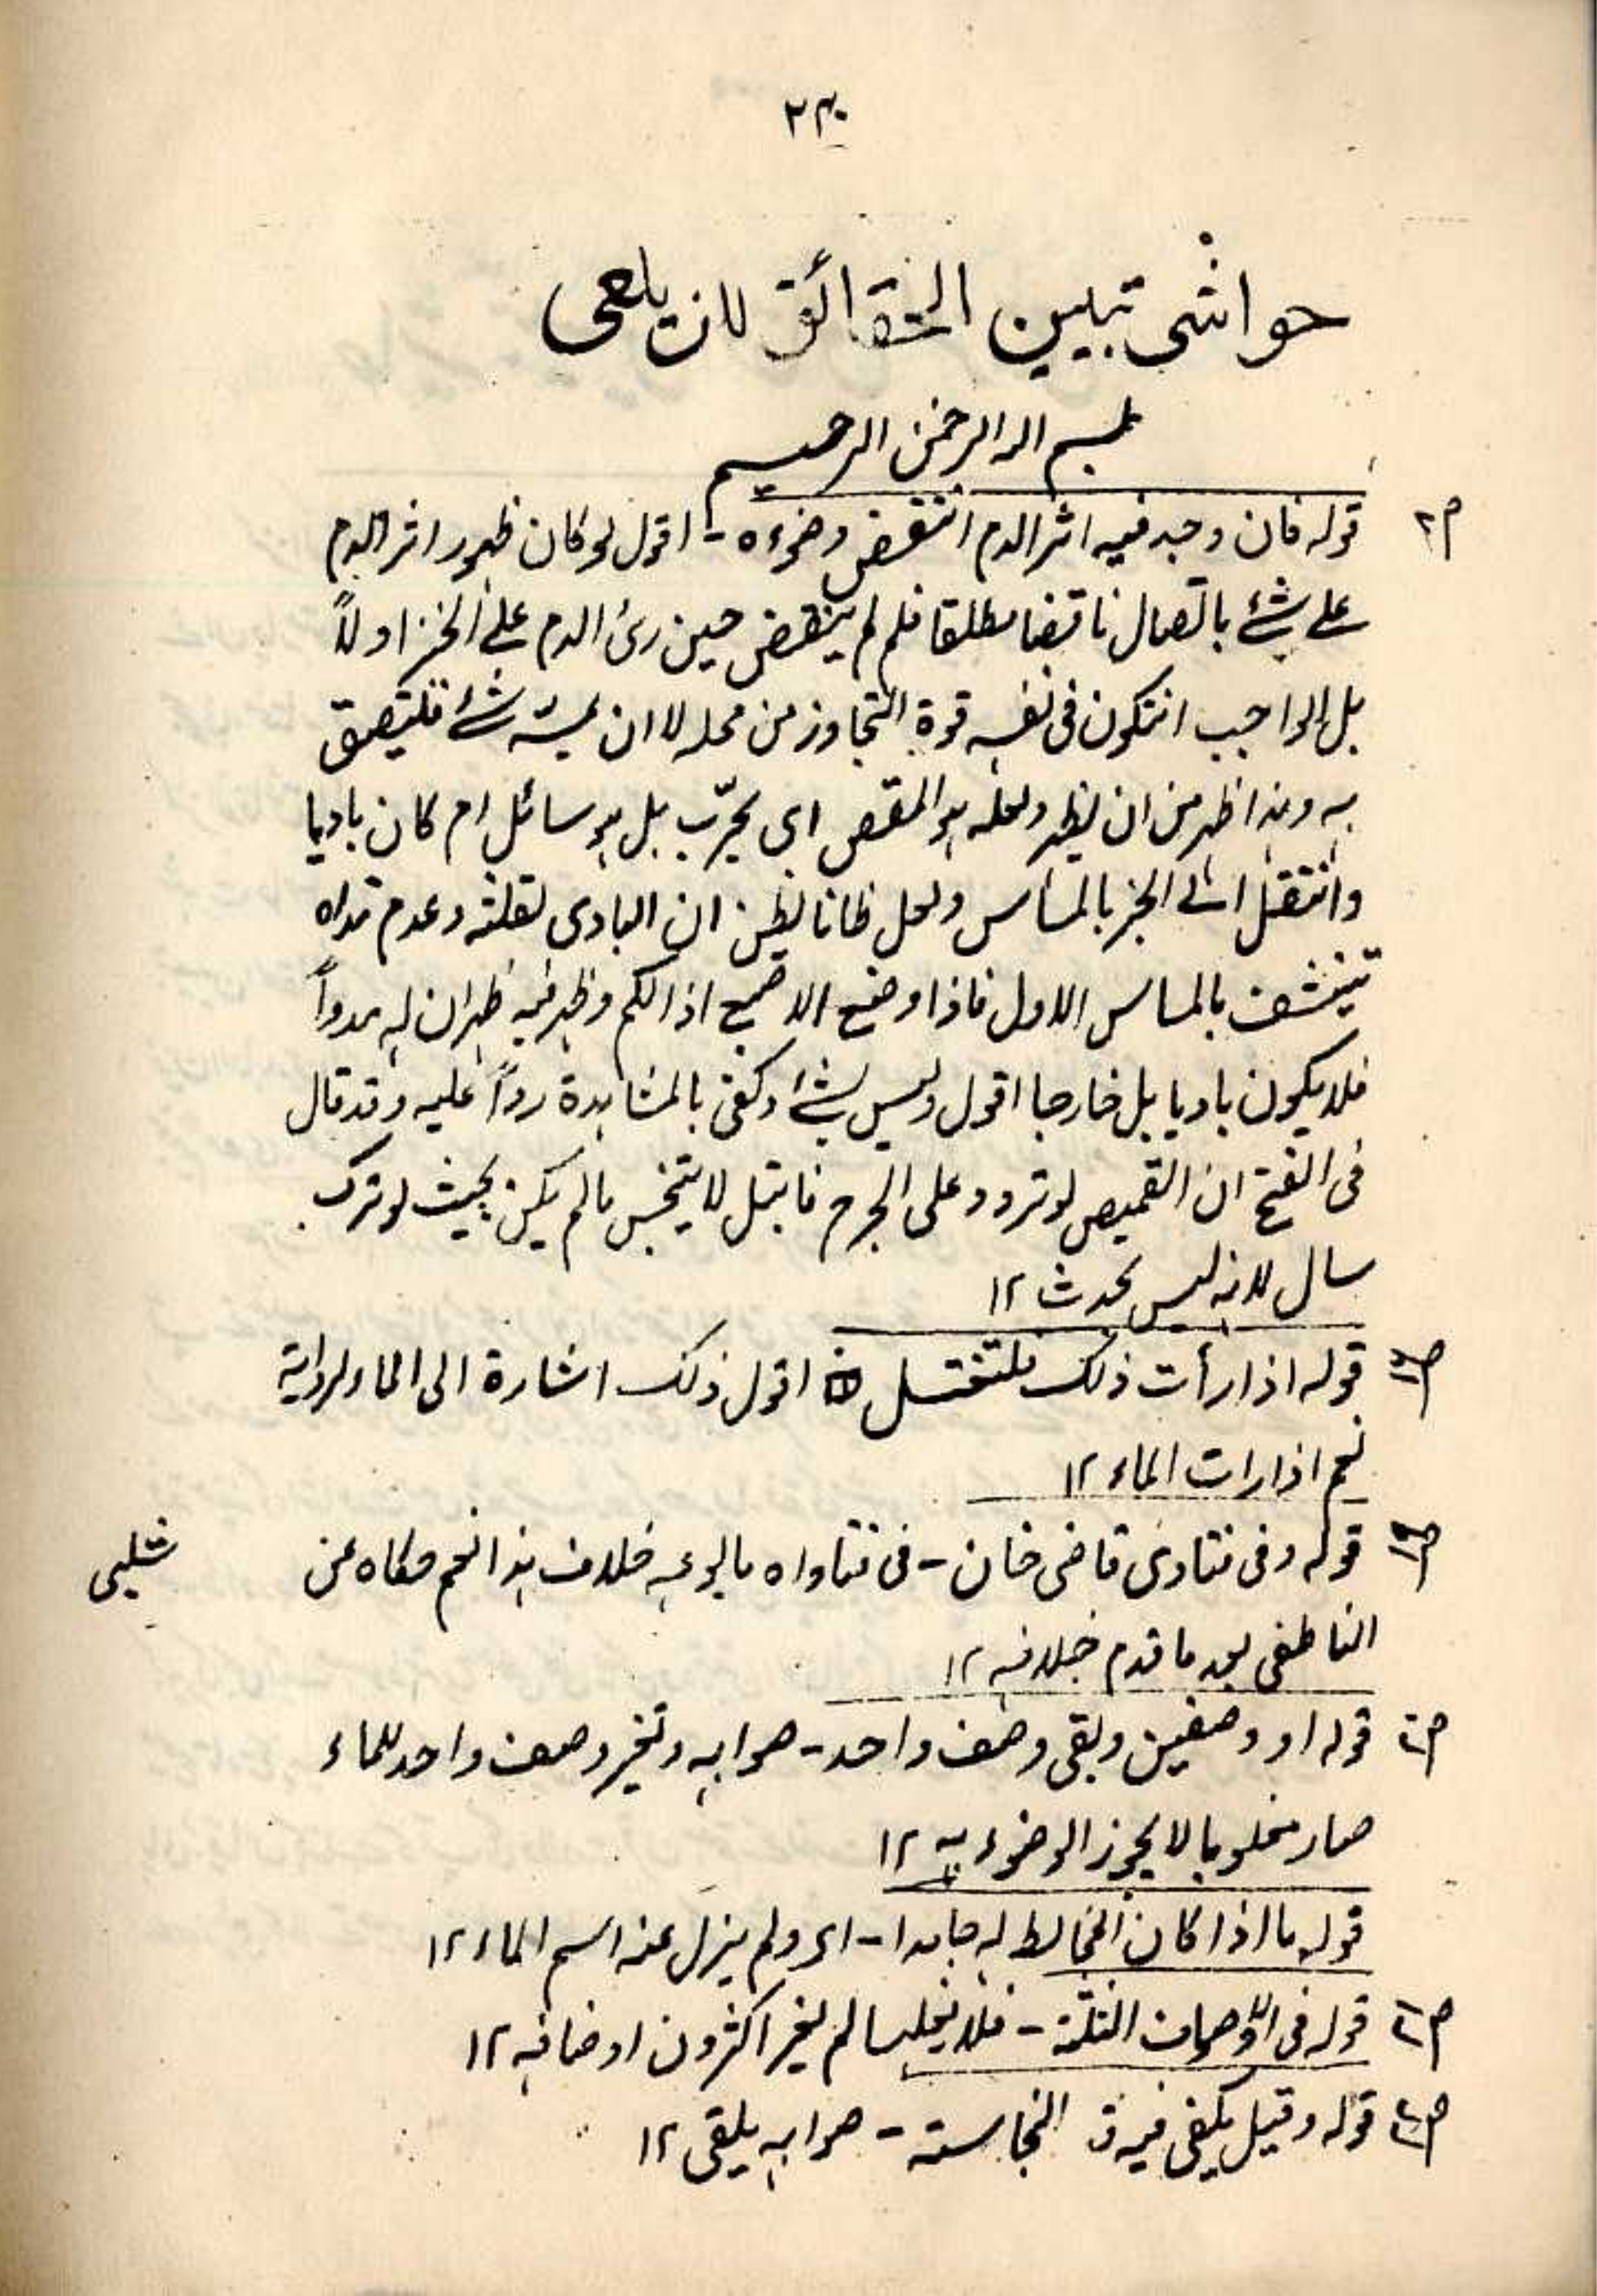 ۲۳۰
حواشی تبیین الحقائق للزیلعی
بسم اللہ الرحمن الرحیم
قوله فان وجد فیه اثر الدم انتقض وضوءہ - اقول لو کان ظهور اثر الدم
علی شئ باتصال ناقضا مطلقا فلم لم ینتقض حین رئ الدم علی الخبز اولاً
بل الواجب ان تکون فی نفسه قوة التجاوز من محله لا ان یمسه شئ فیلتصق
به وهذا اظهر من ان یظهر ولعله هو المقص ای یجرّب بل هو سائل ام کان بادیا
وانتقل الی الخبز بالمساس ولعل ظانا یظن ان البادی لقلته وعدم مداہ
تینشف بالمساس الاول فاذا وضع الاصبع اذ الکم وظهر فیه ظهر ان له مدداً
فلا یکون بادیا بل خارجا اقول ولیس بشئ وکفی بالمشاهدة رداً علیه وقد قال
فی الفتح ان القمیص لو تردد علی الجرح فابتل لا یتنجس مالم یکن بحیث لو ترک
سال لانه لیس بحدث ۱۲
قوله اذا رأت ذلک فلتغتسل اقول ذلک اشارة الی الماء لروایة
نعم اذا رات الماء ۱۲
قوله وفی فتاوی قاضی خان - فی فتاواہ ما یوجه خلاف هذا نعم حکاہ عن
شلبی
الناطفی بعد ما قدم خلافه ۱۲
قوله او وصفین وبقی وصف واحد - صوابه وتغیر وصف واحد للماء
صار مغلوبا لا یجوز الوضوء به ۱۲
قوله ما اذا کان المخالط له جامدا - ای ولم یزل عنه اسم الماء ۱۲
قوله فی الاوصاف الثلثة - فلا یغلب مالم یغیر اکثر من اوصافه ۱۲
قوله وقیل یکفی فیه النجاسته - صوابه یلقی ۱۲